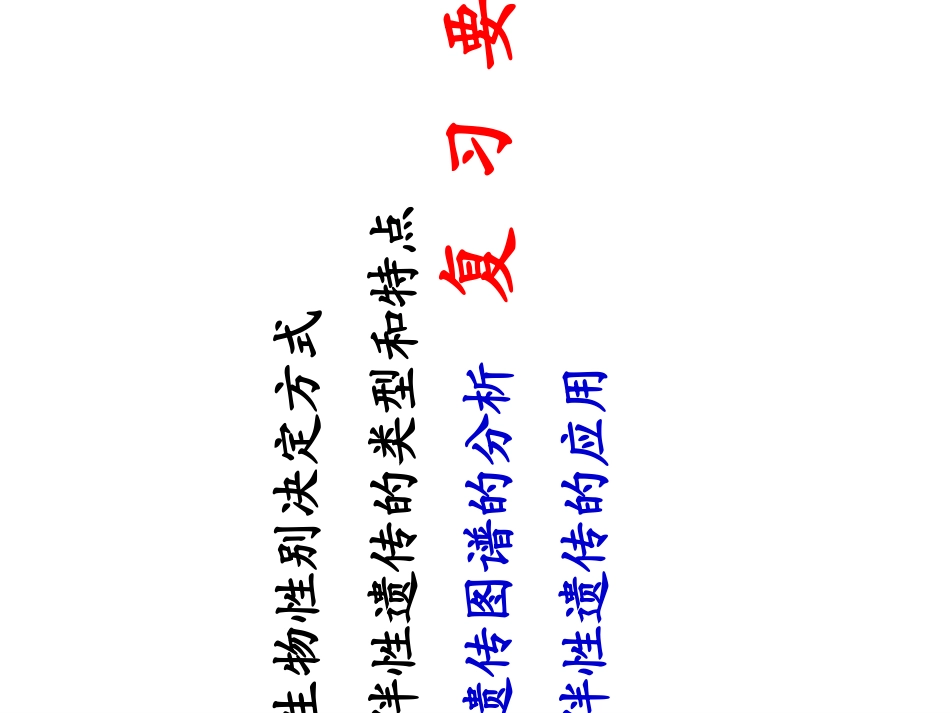 复习要
生物性别决定方式
伴性遗传的类型和特点
遗传图谱的分析
伴性遗传的应用